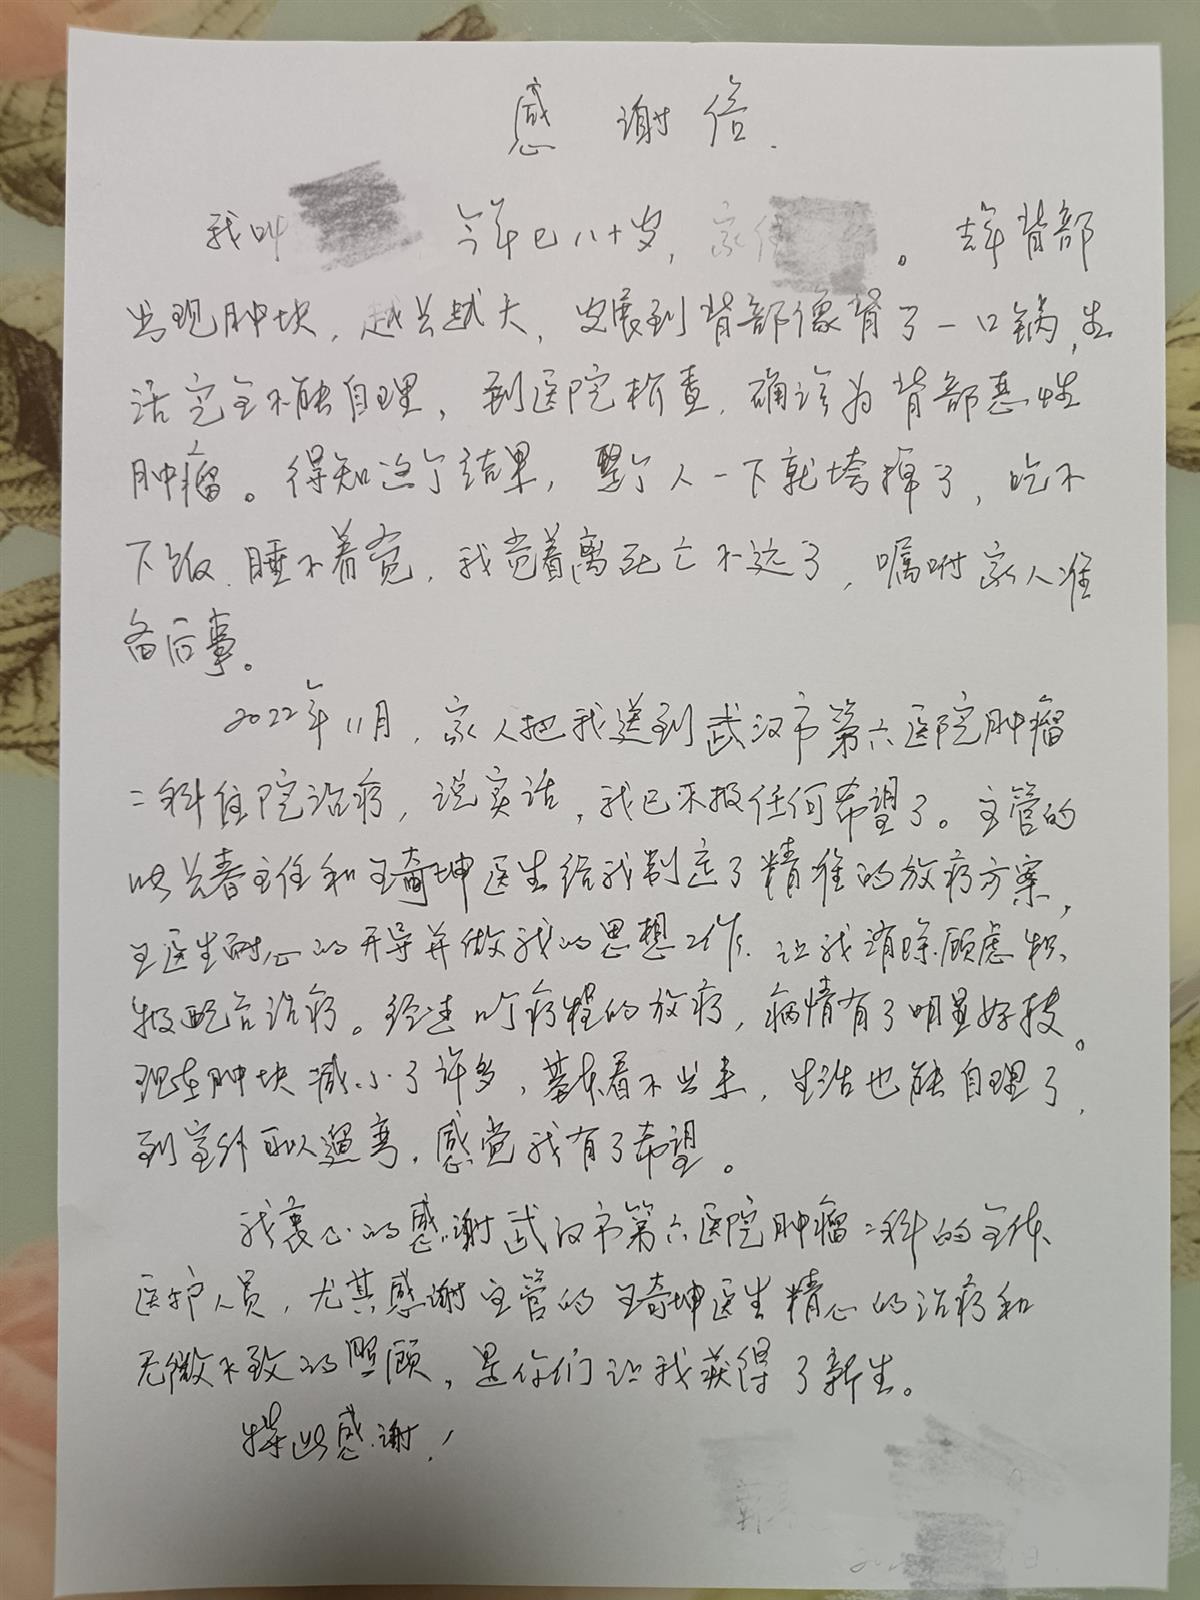 感谢信.
我叫 今年已八十岁，家住 。去年背部
出现肿块，越长越大，发展到背部像背了一口锅，生
活完全不能自理，到医院检查，确诊为背部恶性
肿瘤。得知这个结果，整个人一下就垮掉了，吃不
下饭、睡不着觉，我觉着离死亡不远了，嘱咐家人准
备后事。
2022年11月，家人把我送到武汉市第六医院肿瘤
二科住院治疗，说实话，我已不报任何希望了。主管的
春主任和王琦坤医生给我制定了精准的放疗方案，
王医生耐心的开导并做我的思想工作、让我消除顾虑积
极配合治疗。经过 疗程的放疗，病情有了明显好转。
现在肿块减小了许多，基本看不出来，生活也能自理了，
到室外可以遛弯，感觉我有了希望。
我衷心的感谢武汉市第六医院肿瘤二科的全体
医护人员，尤其感谢主管的王琦坤医生精心的治疗和
无微不致的照顾，是你们让我获得了新生。
特此感谢！